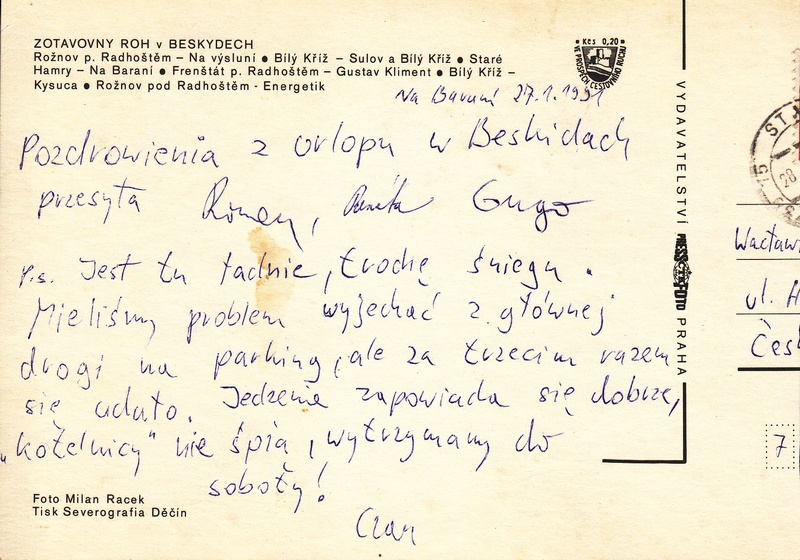 ZOTAVOVNY ROH v BESKYDECH
Rožnov p. Radhoštěm – Na výsluní • Bílý Kříž – Sulov a Bílý Kříž • Staré
Hamry – Na Baraní • Frenštát p. Radhoštěm – Gustav Kliment • Bílý Kříž –
Kysuca • Rožnov pod Radhoštěm - Energetik
Kčs 0,20
VE PROSPĚCH CESTOVNÍHO RUCHU
Na Baraní 27.1.1991
Pozdrowienia z urlopu w Beskidach
przesyła Roman, Renata Gugo
p.s. Jest tu ładnie, trochę śniegu.
Mieliśmy problem wyjechać z głównej
drogi na parking, ale za trzecim razem
się udało. Jedzenie zapowiada się dobrze,
nie śpią, wytrzymamy do
soboty!
Foto Milan Racek
Tisk Severografia Děčín
VYDAVATELSTVÍ PRESSFOTO PRAHA
28
ul.
7